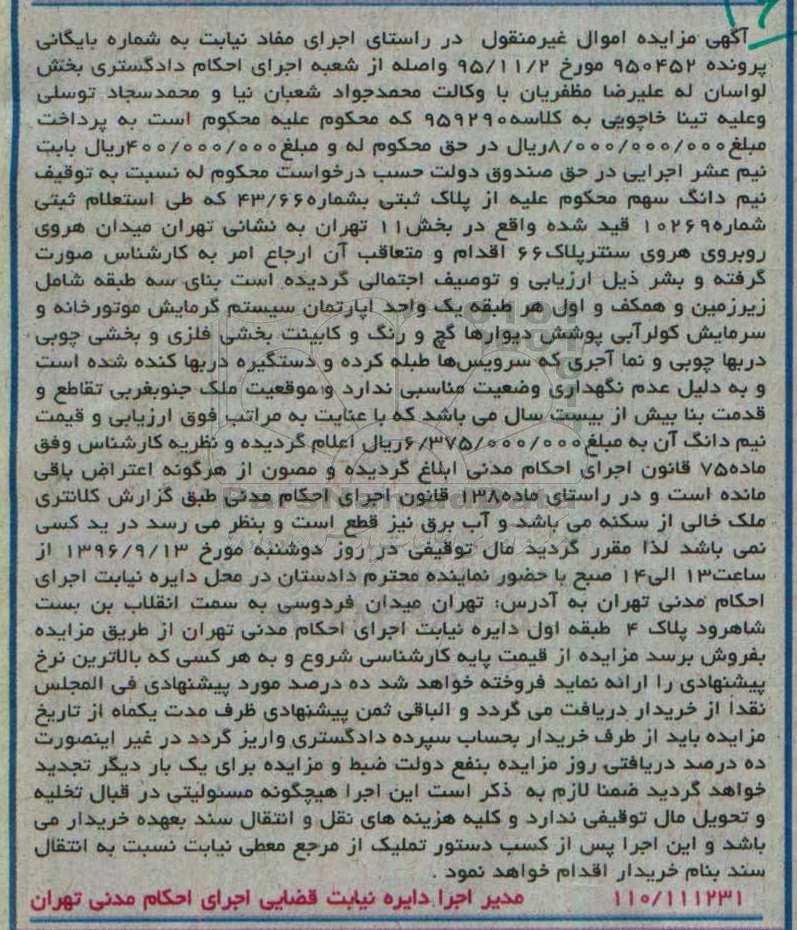 آگهی مزایده اموال غیرمنقول در راستای اجرای مفاد نیابت به شماره بایگانی
پرونده ۹۵۰۴۵۲ مورخ ۹۵/۱۱/۲ واصله از شعبه اجرای احکام دادگستری بخش
لواسان له علیرضا مظفریان با وکالت محمدجواد شعبان نیا و محمدسجاد توسلی
وعلیه تینا خاچویی به کلاسه۹۵۹۲۹۰ که محکوم علیه محکوم است به پرداخت
مبلغ۸/۰۰۰/۰۰۰/۰۰۰ریال در حق محکوم له و مبلغ۴۰۰/۰۰۰/۰۰۰ریال بابت
نیم عشر اجرایی در حق صندوق دولت حسب درخواست محکوم له نسبت به توقیف
نیم دانگ سهم محکوم علیه از پلاک ثبتی بشماره۴۳/۶۶ که طی استعلام ثبتی
شماره۱۰۲۶۹ قید شده واقع در بخش۱۱ تهران به نشانی تهران میدان هروی
روبروی هروی سنترپلاک۶۶ اقدام و متعاقب آن ارجاع امر به کارشناس صورت
گرفته و بشر ذیل ارزیابی و توصیف اجتمالی گردیده است بنای سه طبقه شامل
زیرزمین و همکف و اول هر طبقه یک واحد اپارتمان سیستم گرمایش موتورخانه و
سرمایش کولرآبی پوشش دیوارها گچ و رنگ و کابینت بخشی فلزی و بخشی چوبی
دربها چوبی و نما آجری که سرویس‌ها طبله کرده و دستگیره دربها کنده شده است
و به دلیل عدم نگهداری وضعیت مناسبی ندارد و موقعیت ملک جنوبغربی تقاطع و
قدمت بنا بیش از بیست سال می باشد که با عنایت به مراتب فوق ارزیابی و قیمت
نیم دانگ آن به مبلغ۶/۳۷۵/۰۰۰/۰۰۰ریال اعلام گردیده و نظریه کارشناس وفق
ماده۷۵ قانون اجرای احکام مدنی ابلاغ گردیده و مصون از هرگونه اعتراض باقی
مانده است و در راستای ماده۱۳۸ قانون اجرای احکام مدنی طبق گزارش کلانتری
ملک خالی از سکنه می باشد و آب برق نیز قطع است و بنظر می رسد در ید کسی
نمی باشد لذا مقرر گردید مال توقیفی در روز دوشنبه مورخ ۱۳۹۶/۹/۱۳ از
ساعت۱۳ الی۱۴ صبح با حضور نماینده محترم دادستان در محل دایره نیابت اجرای
احکام مدنی تهران به آدرس: تهران میدان فردوسی به سمت انقلاب بن بست
شاهرود پلاک ۴ طبقه اول دایره نیابت اجرای احکام مدنی تهران از طریق مزایده
بفروش برسد مزایده از قیمت پایه کارشناسی شروع و به هر کسی که بالاترین نرخ
پیشنهادی را ارائه نماید فروخته خواهد شد ده درصد مورد پیشنهادی فی المجلس
نقدا از خریدار دریافت می گردد و الباقی ثمن پیشنهادی ظرف مدت یکماه از تاریخ
مزایده باید از طرف خریدار بحساب سپرده دادگستری واریز گردد در غیر اینصورت
ده درصد دریافتی روز مزایده بنفع دولت ضبط و مزایده برای یک بار دیگر تجدید
خواهد گردید ضمنا لازم به ذکر است این اجرا هیچگونه مسئولیتی در قبال تخلیه
و تحویل مال توقیفی ندارد و کلیه هزینه های نقل و انتقال سند بعهده خریدار می
باشد و این اجرا پس از کسب دستور تملیک از مرجع معطی نیابت نسبت به انتقال
سند بنام خریدار اقدام خواهد نمود .
۱۱۰/۱۱۱۲۳۱ مدیر اجرا دایره نیابت قضایی اجرای احکام مدنی تهران